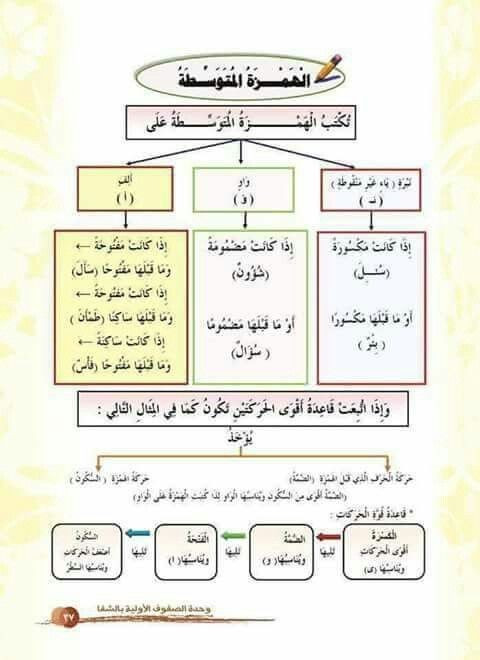 الْهَمْزَةُ الْمُتَوَسِّطَةُ
تُكْتَبُ الْهَمْزَةُ الْمُتَوَسِّطَةُ عَلَى
نَبْرَةٍ ( يَاءٍ غَيْرِ مَنْقُوطَةٍ )
( ئـ )
وَاوٍ
( ؤ )
أَلِفٍ
( أ )
إِذَا كَانَتْ مَكْسُورَةً
(سُئِلَ)
أَوْ مَا قَبْلَهَا مَكْسُورًا
( بِئْرٌ )
إِذَا كَانَتْ مَضْمُومَةً
(شُؤُونٌ)
أَوْ مَا قَبْلَهَا مَضْمُومًا
( سُؤَالٌ )
إِذَا كَانَتْ مَفْتُوحَةً ←
وَمَا قَبْلَهَا مَفْتُوحًا (سَأَلَ)
إِذَا كَانَتْ مَفْتُوحَةً ←
وَمَا قَبْلَهَا سَاكِنًا (طَمْأَنَ )
إِذَا كَانَتْ سَاكِنَةً ←
وَمَا قَبْلَهَا مَفْتُوحًا (فَأْسٌ)
وَإِذَا اتُّبِعَتْ قَاعِدَةُ أَقْوَى الْحَرَكَتَيْنِ تَكُونُ كَمَا فِي الْمِثَالِ التَّالِي :
يُؤْخَذُ
حَرَكَةُ الْحَرْفِ الَّذِي قَبْلَ الْهَمْزَةِ (الضَّمَّةُ)
حَرَكَةُ الْهَمْزَةِ ( السُّكُونُ )
(الضَّمَّةُ أَقْوَى مِنَ السُّكُونِ وَيُنَاسِبُهَا الْوَاوُ لِذَا كُتِبَتِ الْهَمْزَةُ عَلَى الْوَاوِ)
* قَاعِدَةُ قُوَّةِ الْحَرَكَاتِ :
الْكَسْرَةُ
أَقْوَى الْحَرَكَاتِ
وَيُنَاسِبُهَا (ى)
تَلِيهَا
الضَّمَّةُ
وَيُنَاسِبُهَا ( و )
تَلِيهَا
الْفَتْحَةُ
وَيُنَاسِبُهَا ( ا )
تَلِيهَا
السُّكُونُ
أَضْعَفُ الْحَرَكَاتِ
وَيُنَاسِبُهَا السَّطْرُ
وحدة الصفوف الأولية بالشفا
٣٧